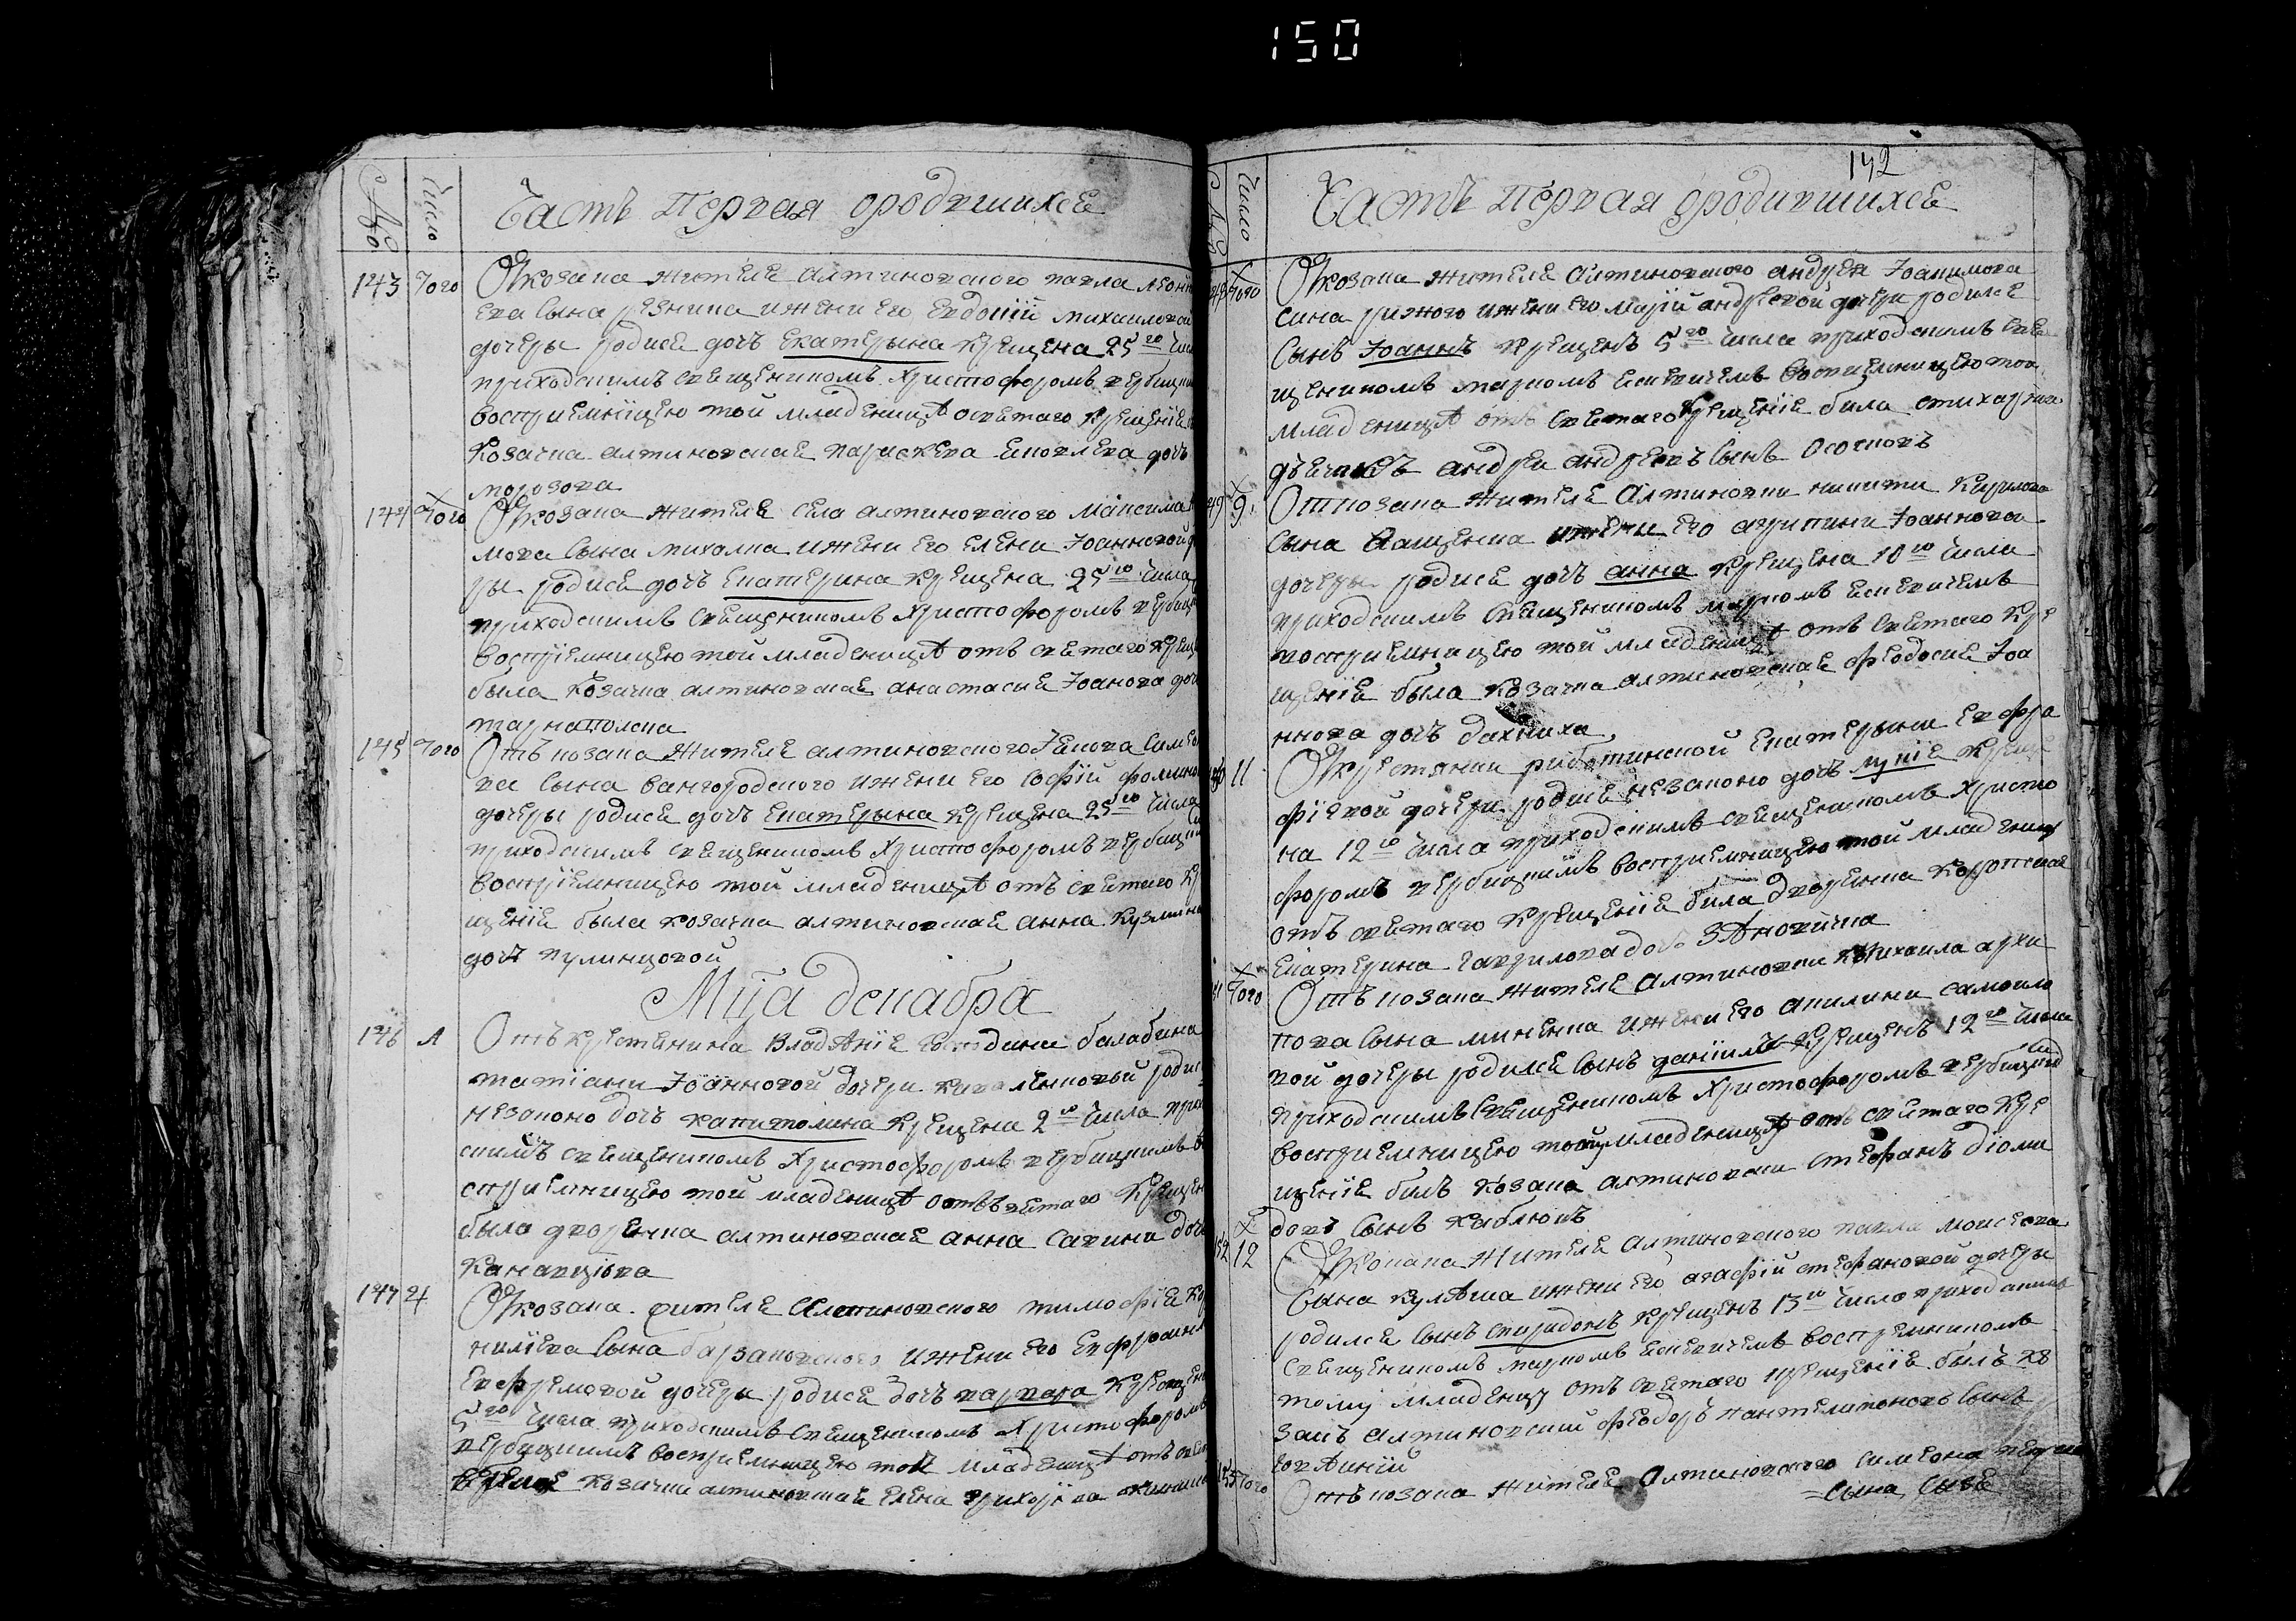 150
№ Число Часть первая ородившихсе
143 Того От козака жителе алтиновского павла леон
ева сына резника и жени его евдокіи михаиловой
дочеры родисе дочь екатерына крещена 25го чис
приходскимъ свещеникомъ Христофоромъ вербицки
восприемніцею той младеницѣ освѣтаго крещеніе
козачка алтиновская параскева яковлева дочь
морозова
144 Того От козака жителе села алтиновского максима
мова сына михалка и жени его елени Іоанновой
ры родисе дочь екатерина крещена 25го числа
приходскимъ свещеникомъ Христофоромъ вербиц
воспріемницею той младеницѣ отъ светаго крещ
была козачка алтиновская анастасие Іоанова доч
тарнаполска
145 Того Отъ козака жителе алтиновского Іякова симео
на сына вангородского и жени его софіи фомино
дочеры родисе дочь екатерына крещена 25го числа
приходскимъ свещеникомъ Христофоромъ вербицки
воспріемницею той младеницѣ отъ светаго кр
щеніе была козачка алтиновская анна кузмина
дочъ кулинцовой
Мца декабра
146 А Отъ крестенина владѣніе господина балабина
татіани Іоанновой дочери коваленковой родис
незаконо дочь капитолина крещена 2го числа при
скимъ свещеникомъ Христофоромъ вербицкимъ в
сприемницею той младеницѣ отъ светаго крещен
была дворенка алтиновская анна савина доч
Канавціова
147 4 От козака жителе алтиновского тимофіе ко
нилѣева сына базановского и жени его евфросин
евфремовой дочери родисе дочь варвара крещен
5го числа приходскимъ свещеникомъ Христофоромъ
вербицкимъ восприемницею той младеницѣ отъ све
козачка алтиновская елена григорѣва
142
№ Число Часть первая ородившихсе
148 Того От козака жителе алтиновского андрея Іоакимова
сина рижого и жени его маріи андреевой дочери родилсе
сынъ Іоаннъ крещенъ 5го числа приходскимъ све
щеникомъ маркомъ еснвичемъ восприемницею той
младеницѣ отъ светаго крещеніе била
дьячокъ андрей андреевъ сынъ осочновъ
149 9 От козака жителе алтиновки никити кирилова
сына ващенка и жени его агрипини Іоаннова
дочеры родисе дочъ анна крещена 10го числа
приходскимъ свещеникомъ маркомъ еснвичемъ
восприемницею той младеницѣ отъ светаго кре
щеніе была козачка алтиновская феодосие Іоа
ннова дочь дахниха
150 11 От крестянки риботинской екатерыни евфра
фіевой дочери родисе незаконо дочь лукіе креще
на 12го числа приходскимъ свещеникомъ Христо
форомъ вербицкимъ восприемницею той младениц
отъ светаго крещеніе била дворенка коропская
екатерина гаврилова до ЗАновична
151 Того Отъ козака жителе алтиновки михаила архи
пова сына миненка и жени его акилини самоило
вой дочеры родилсе сынъ даніилъ крещенъ 12го числа
приходскимъ свещеникомъ Христофоромъ вербицки
восприемницею той младеницѣ отъ светаго кре
щеніе билъ козакъ алтиновски стефанъ діоми
довъ сынъ каблюкъ
152 12 От козака жителе алтиновского павла моисеева
сына кулѣша и жени его агафіи стефановой дочеры
родилсе сынъ спиридонъ крещенъ 13го числа приходскимъ
свещеникомъ маркомъ еснвичемъ восприемникомъ
тому младенцу отъ светаго крещеніе билъ ко
закъ алтиновский феодоръ пантелимоновъ сынъ
153 Того Отъ козака жителе алтиновского симеона
сына